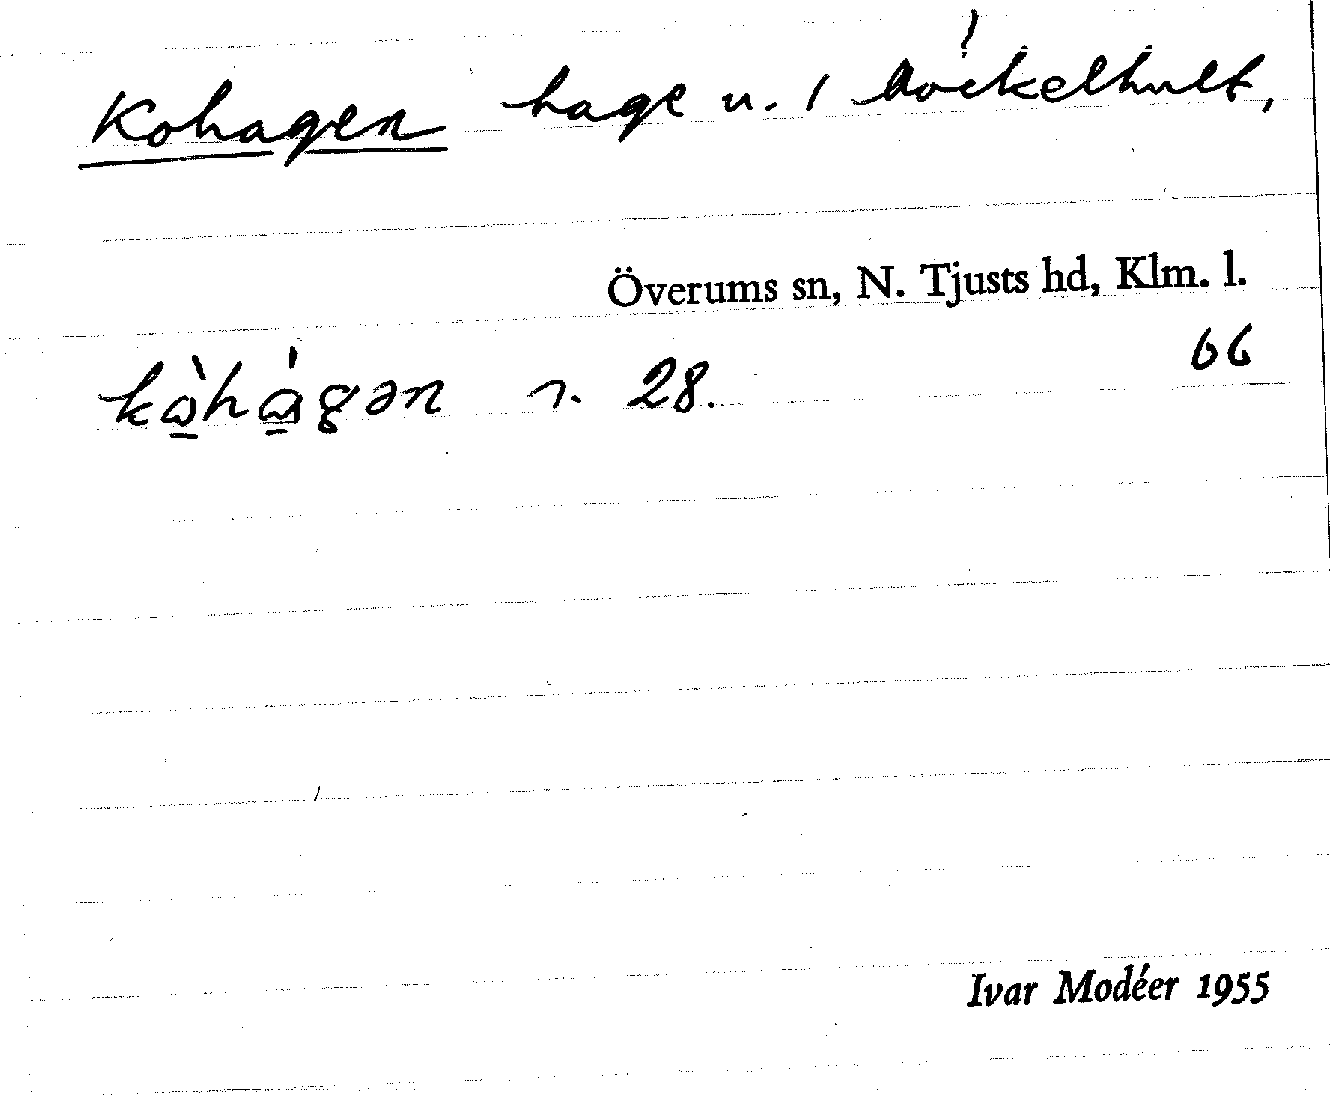 Kohagen hage u. 1 Bockelhult,
Överums sn, N. Tjusts hd, Klm. l.
66
kò̱há̱gən n. 28.
Ivar Modéer 1955